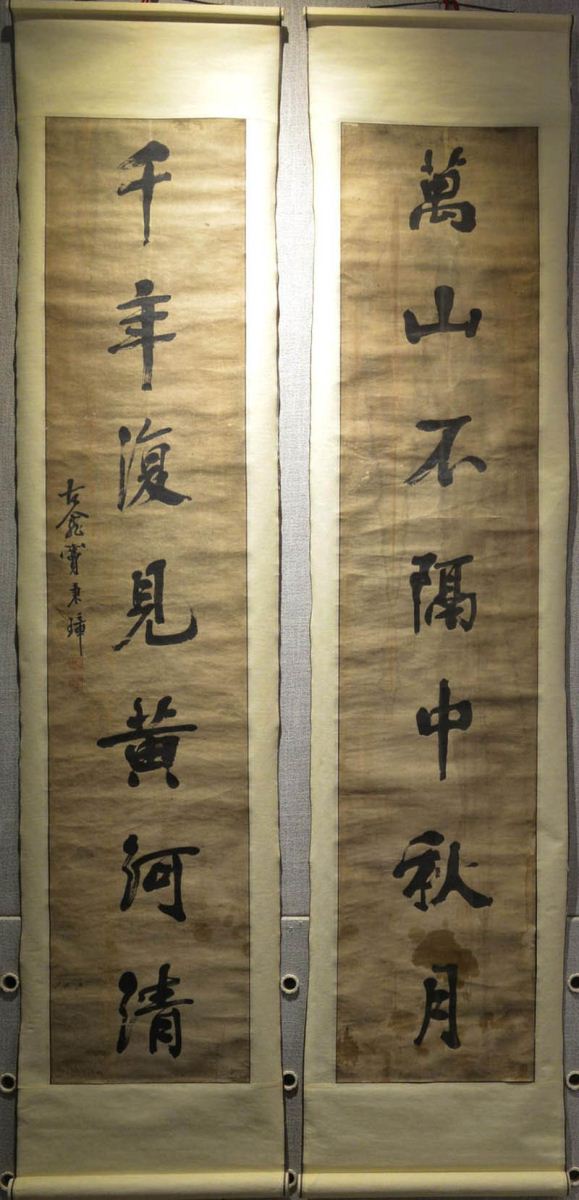 萬山不隔中秋月
千年復見黃河清
古 秉璋